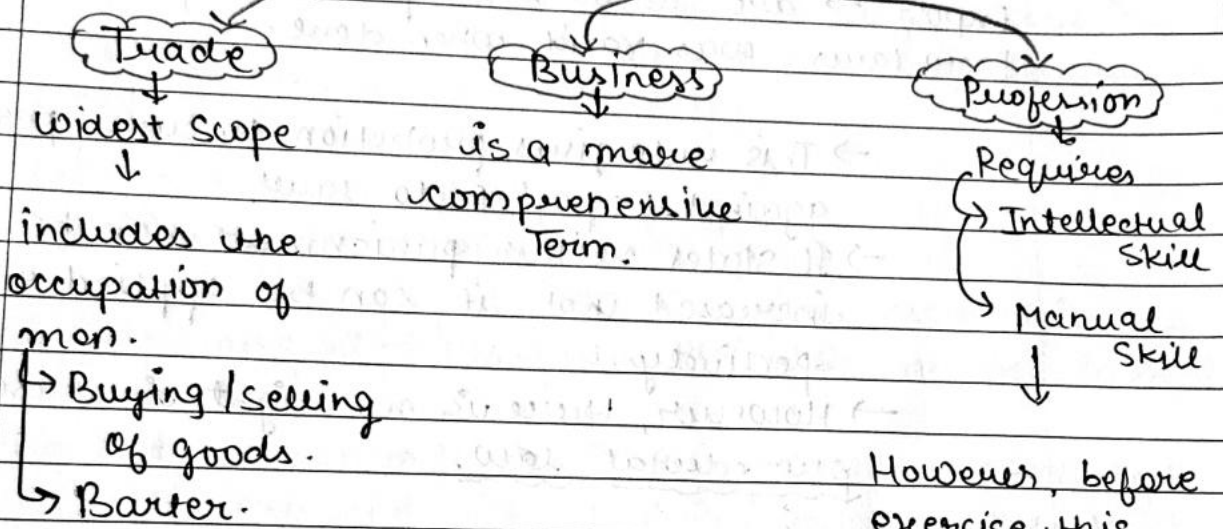 Trade
↓
widest scope
↓
includes the
occupation of
men.
→ Buying/selling
of goods.
→ Barter.
Business
↓
is a more
comprehensive
Term.
Profession
↓
Requires
→ Intellectual
Skill
→ Manual
Skill
↓
However, before
exercise this